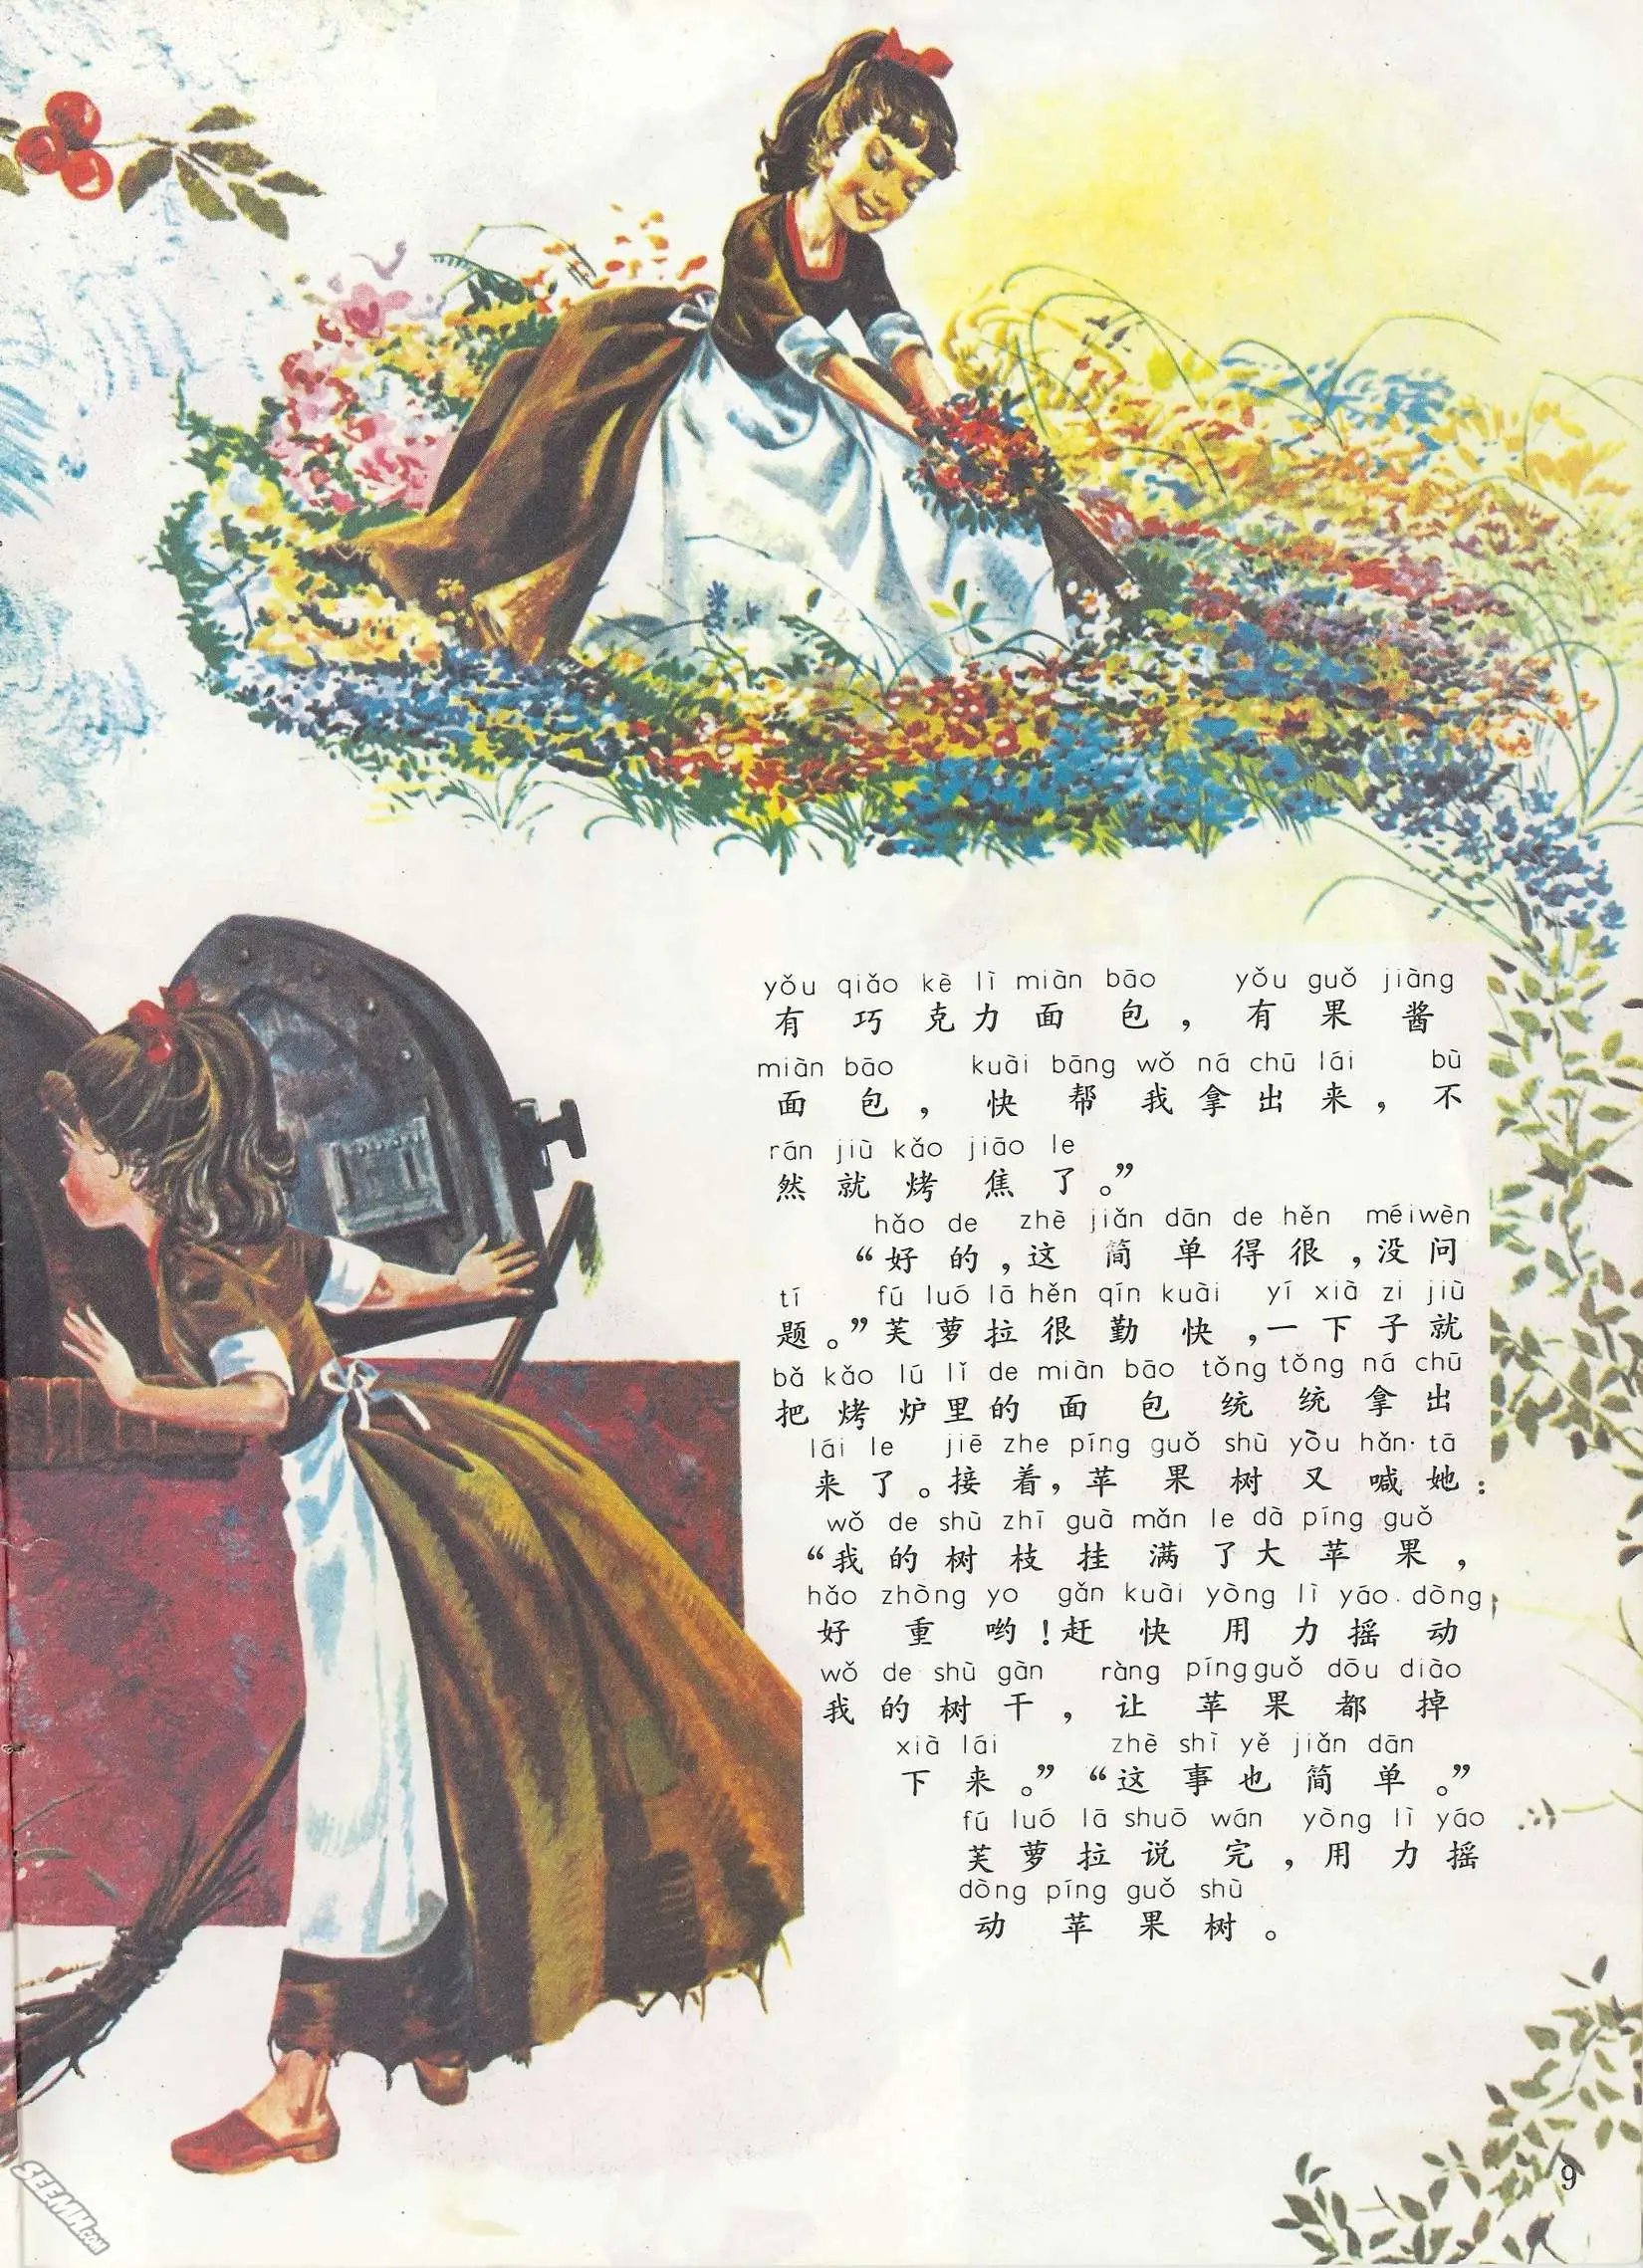 yǒu qiǎo kè lì miàn bāo yǒu guǒ jiàng
有巧克力面包，有果酱
miàn bāo kuài bāng wǒ ná chū lái bù
面包，快帮我拿出来，不
rán jiù kǎo jiāo le
然就烤焦了。”
hǎo de zhè jiǎn dān de hěn méiwèn
“好的，这简单得很，没问
tí fú luó lā hěn qín kuài yí xià zi jiù
题。”芙萝拉很勤快，一下子就
bǎ kǎo lú lǐ de miàn bāo tǒng tǒng ná chū
把烤炉里的面包统统拿出
lái le jiē zhe píng guǒ shù yòu hǎn tā
来了。接着，苹果树又喊她：
wǒ de shù zhī guà mǎn le dà píng guǒ
“我的树枝挂满了大苹果，
hǎo zhòng yo gǎn kuài yòng lì yáo dòng
好重哟！赶快用力摇动
wǒ de shù gàn ràng píngguǒ dōu diào
我的树干，让苹果都掉
xià lái zhè shì yě jiǎn dān
下来。”“这事也简单。”
fú luó lā shuō wán yòng lì yáo
芙萝拉说完，用力摇
dòng píng guǒ shù
动苹果树。
9
SEEMH.COM